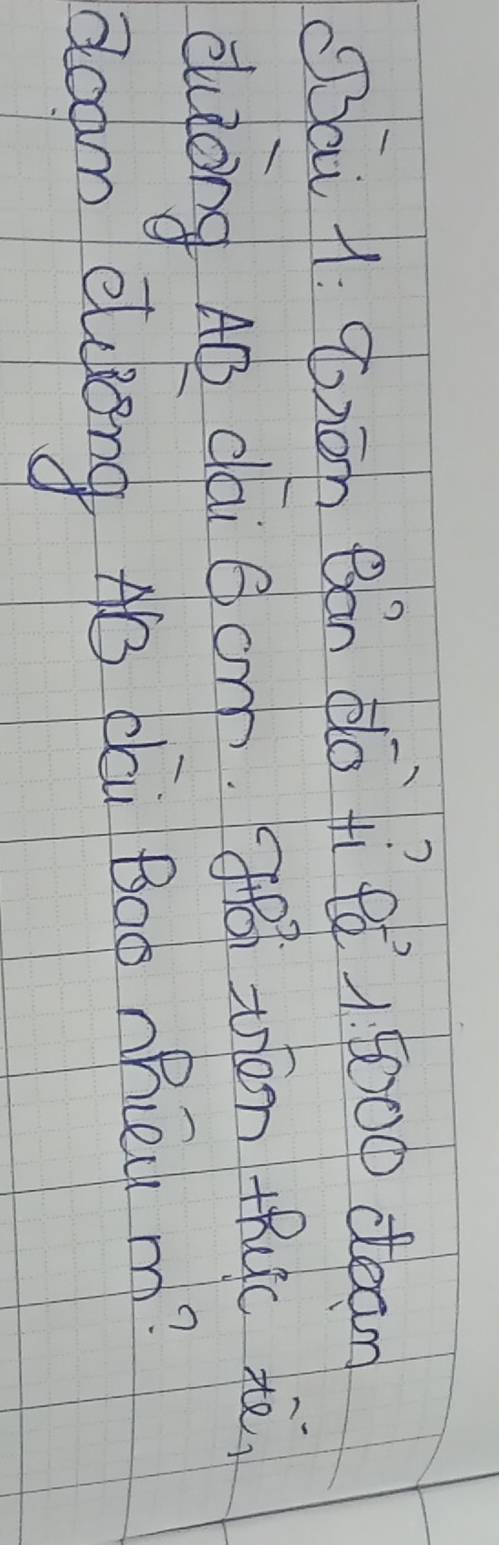 Bài 1: Trên bản đồ tỉ lệ 1:5000 đoạn
đường AB dài 6 cm. Hỏi trên thực tế,
đoạn đường AB dài bao nhiêu m?